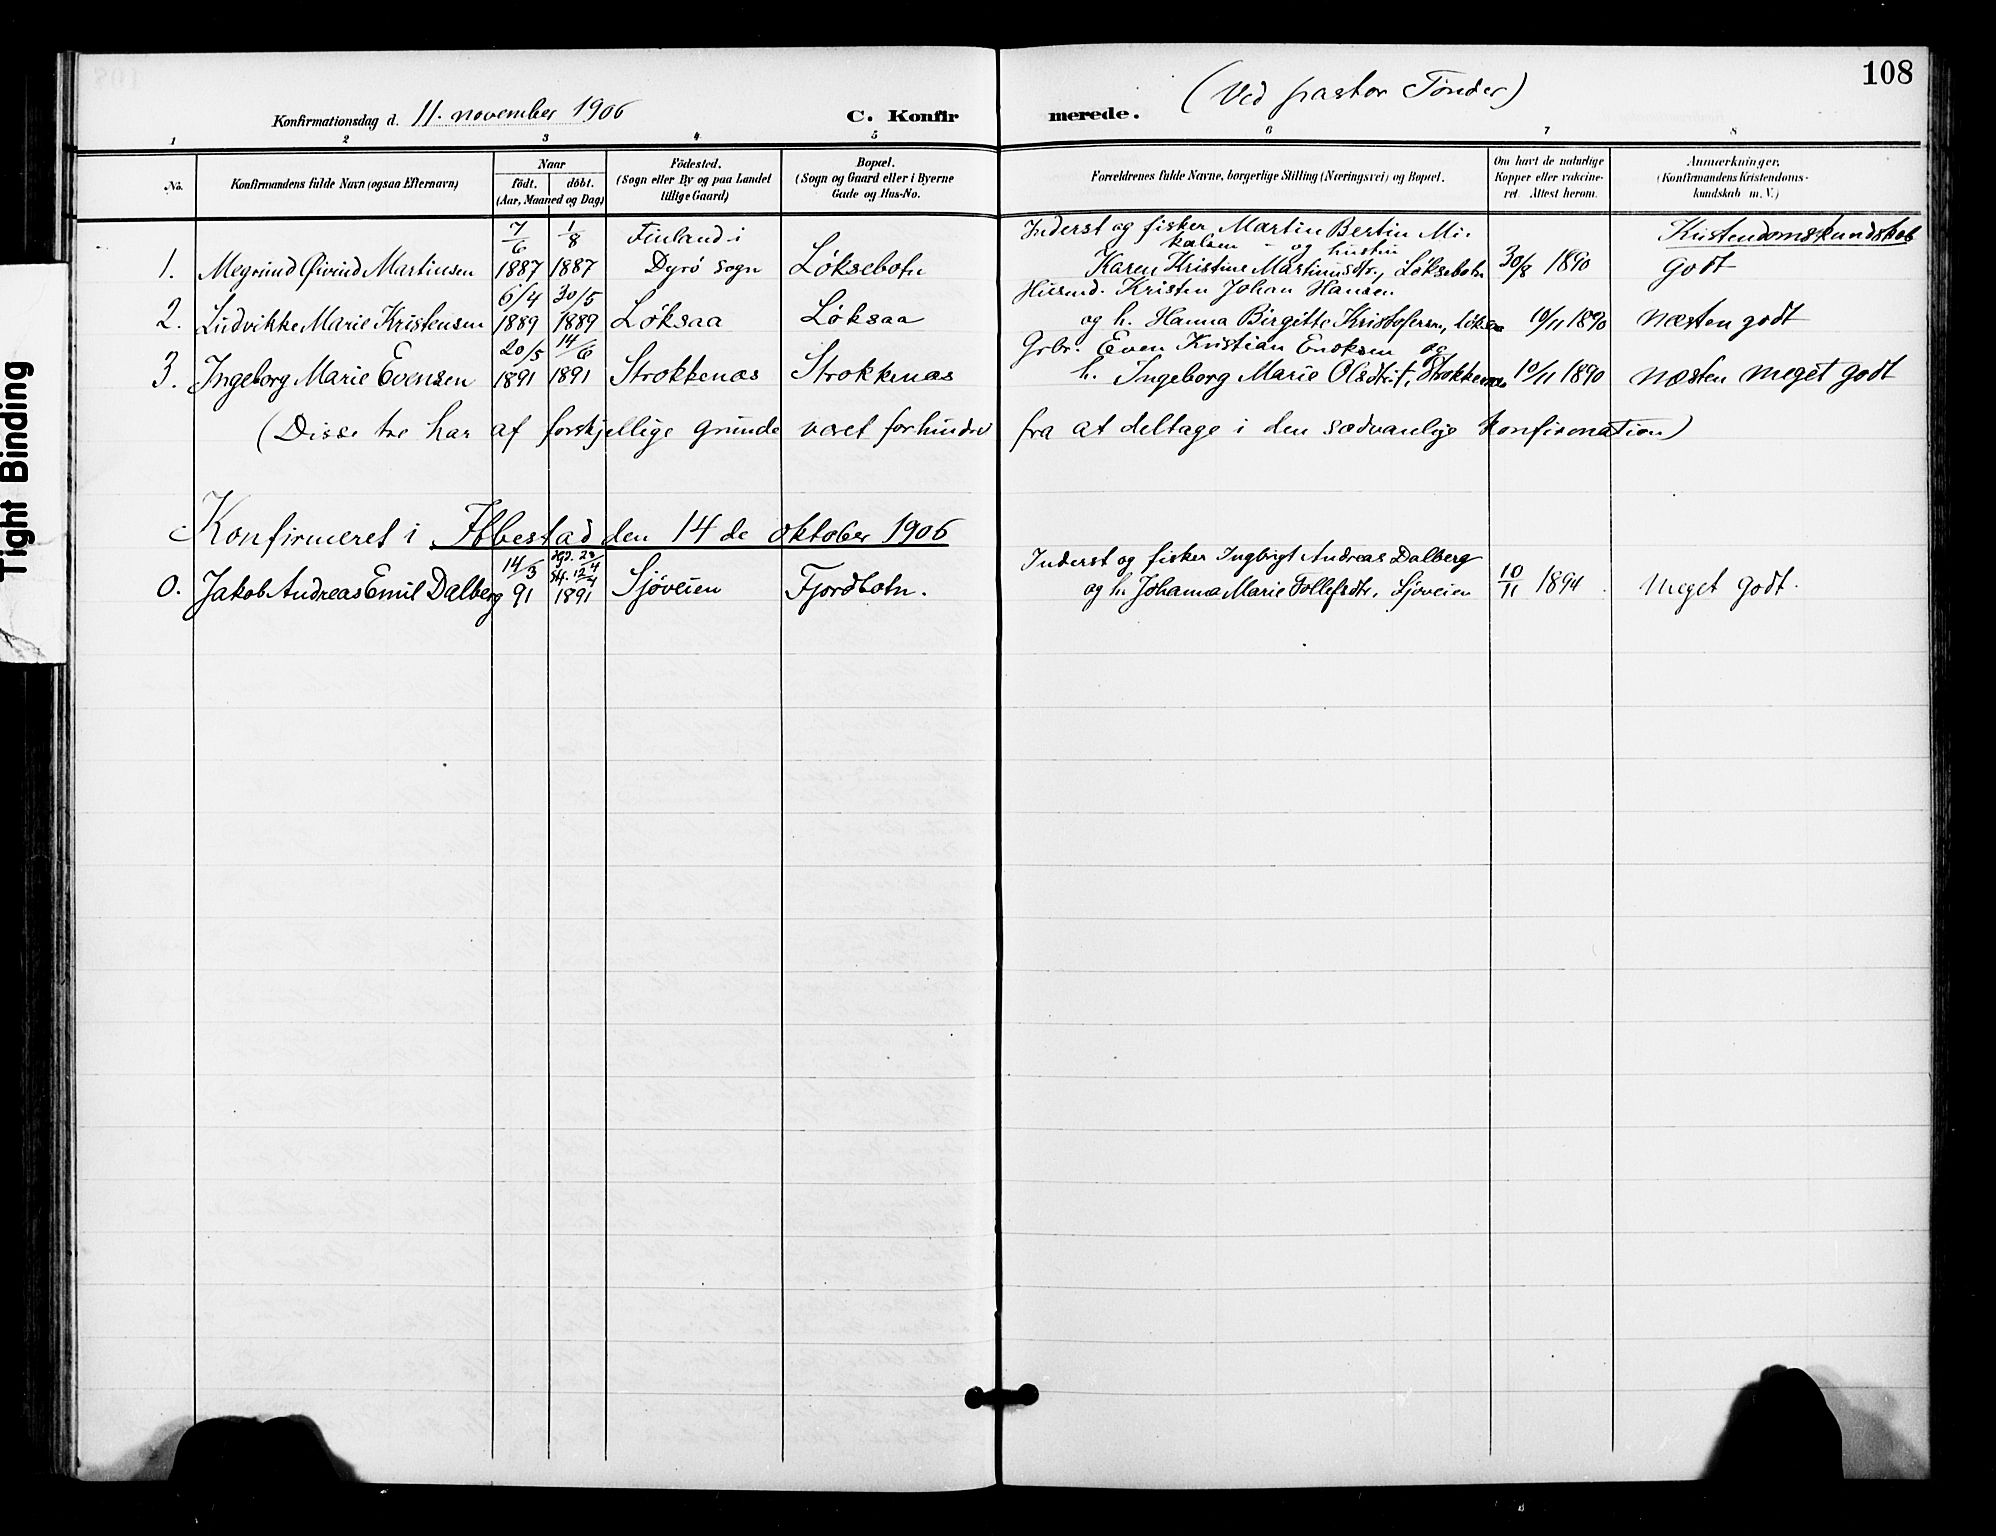 108
(Ved pastor Tønder)
Konfirmationsdag d. 11. november 1906
C. Konfirmerede.
1 2 3 4 5 6 7 8
No.
Konfirmandens fulde Navn (ogsaa Efternavn)
Naar
födt. döbt.
(Aar, Maaned og Dag)
Födested.
(Sogn eller By og paa Landet
tillige Gaard)
Bopæl.
(Sogn og Gaard eller i Byerne
Gade og Hus-No.
Forældrenes fulde Navne, borgerlige Stilling (Næringsvei) og Bopæl.
Om havt de naturlige
Kopper eller vaccine-
ret. Attest herom.
Anmærkninger.
(Konfirmandens Kristendoms-
kundskab m. V.)
7/6 1/8 Finland i Inderst og fisker Martin Bertin Mi- Kristendomskundskab
kalsen og hustru
1. Øivind Martinsen 1887 1887 Dyrö sogn Løksebotn Karen Kristine Martinusdtr., Løksebotn 30/8 1890 godt
6/4 30/5 Husmd. Kristen Johan Hansen
2. Ludvikke Marie Kristensen 1889 1889 Løksaa Løksaa og h. Hanna Birgitte Kristofersen, Løksaa 10/11 1890 næsten godt
20/5 14/6 Grbr. Even Kristian Enoksen og
3. Ingeborg Marie Evensen 1891 1891 Strokkenæs Strokkenæs h. Ingeborg Marie Olsdtr., Strokkenæs 10/11 1890 næsten meget godt
(Disse tre har af forskjellige grunde været forhindret fra at deltage i den sædvanlige konfirmation)
Konfirmeret i Ibbestad den 14de oktober 1906
14/3 Hjd. 23/4 Inderst og fisker Ingbrigt Andreas Dalberg
Stf. 12/4
0. Jakob Andreas Emil Dalberg 91 1891 Sjøveien Fjordbotn. og h. Johanna Marie Tollefsdtr. Sjøveien 10/11 1894. Meget godt.
Tight Binding